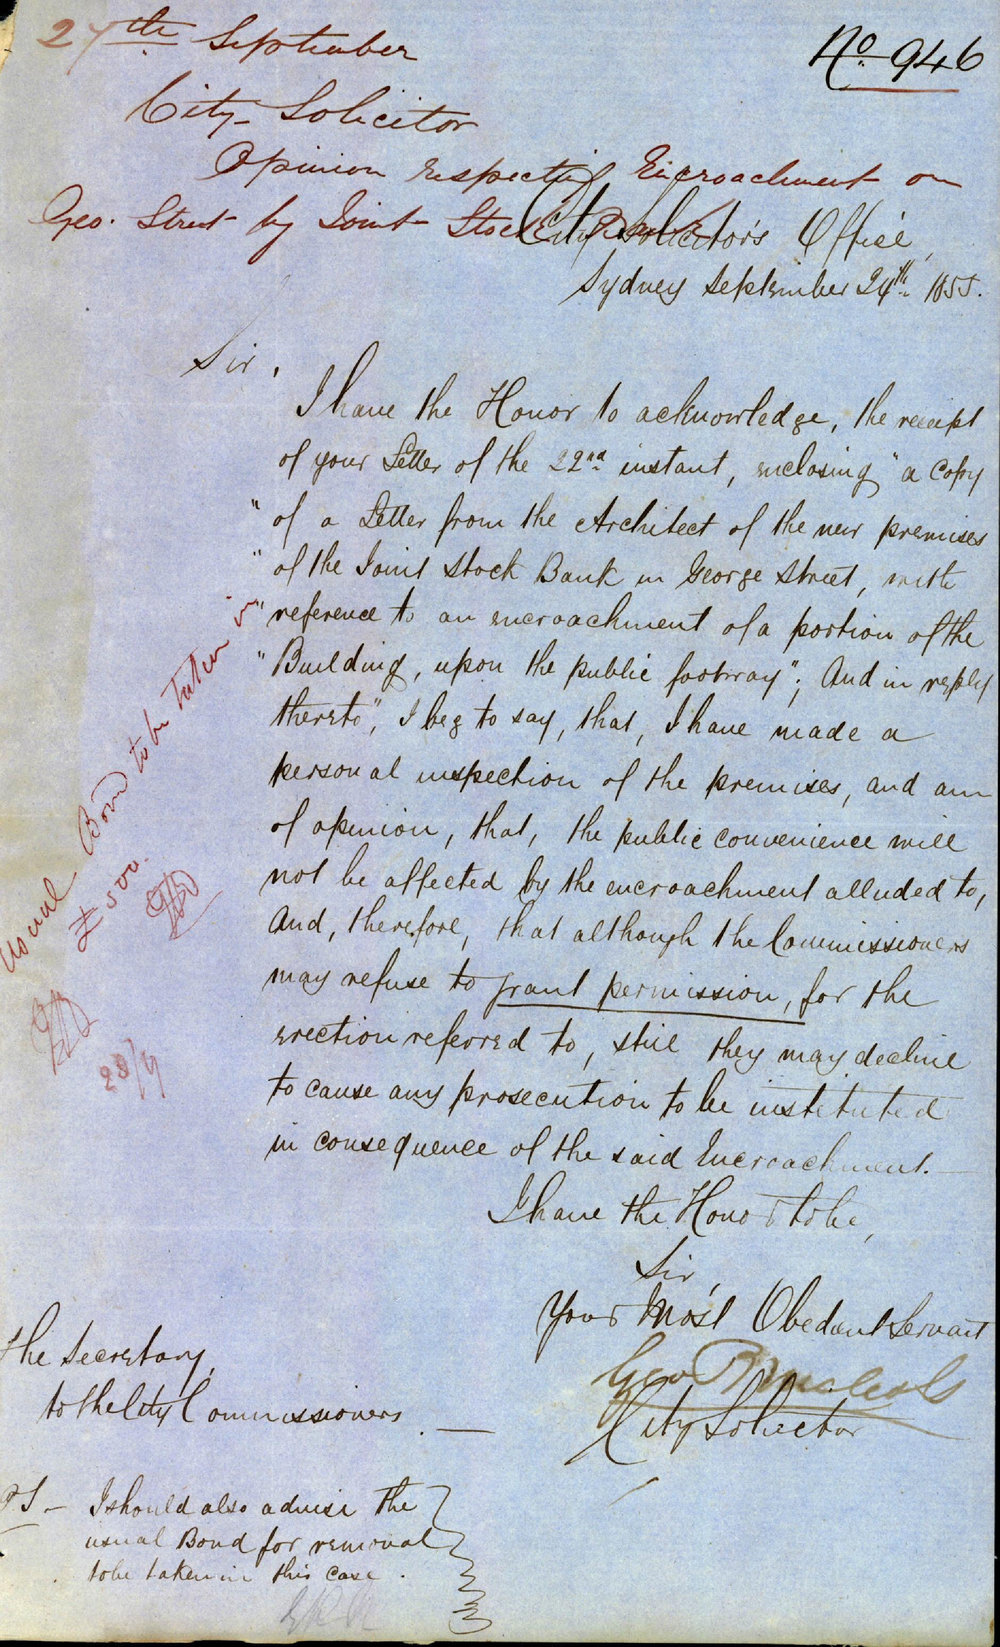 27th September
No. 946
City Solicitor
Opinion respecting Encroachment on
Geo. Street by Joint Stock Bank
City Solicitor's Office,
Sydney September 24th 1855.
Sir,
I have the Honor to acknowledge, the receipt
of your Letter of the 22nd instant, enclosing "a Copy
"of a Letter from the Architect of the new premises
"of the Joint Stock Bank in George Street, with
"reference to an encroachment of a portion of the
"Building, upon the public footway"; And in reply
thereto", I beg to say, that, I have made a
personal inspection of the premises, and am
of opinion, that, the public convenience will
not be affected by the encroachment alluded to,
And, therefore, that although the Commissioners
may refuse to grant permission, for the
erection referred to, still they may decline
to cause any prosecution to be instituted
in consequence of the said Encroachment.
I have the Honor to be,
Sir,
Your Most Obedant Servant
Geo
City Solicitor
The Secretary,
to the City Commissioners.
PS - I should also advise the
usual Bond for removal
to be taken in this case.
GRN
Usual Bond to be taken in
£500.
28/9